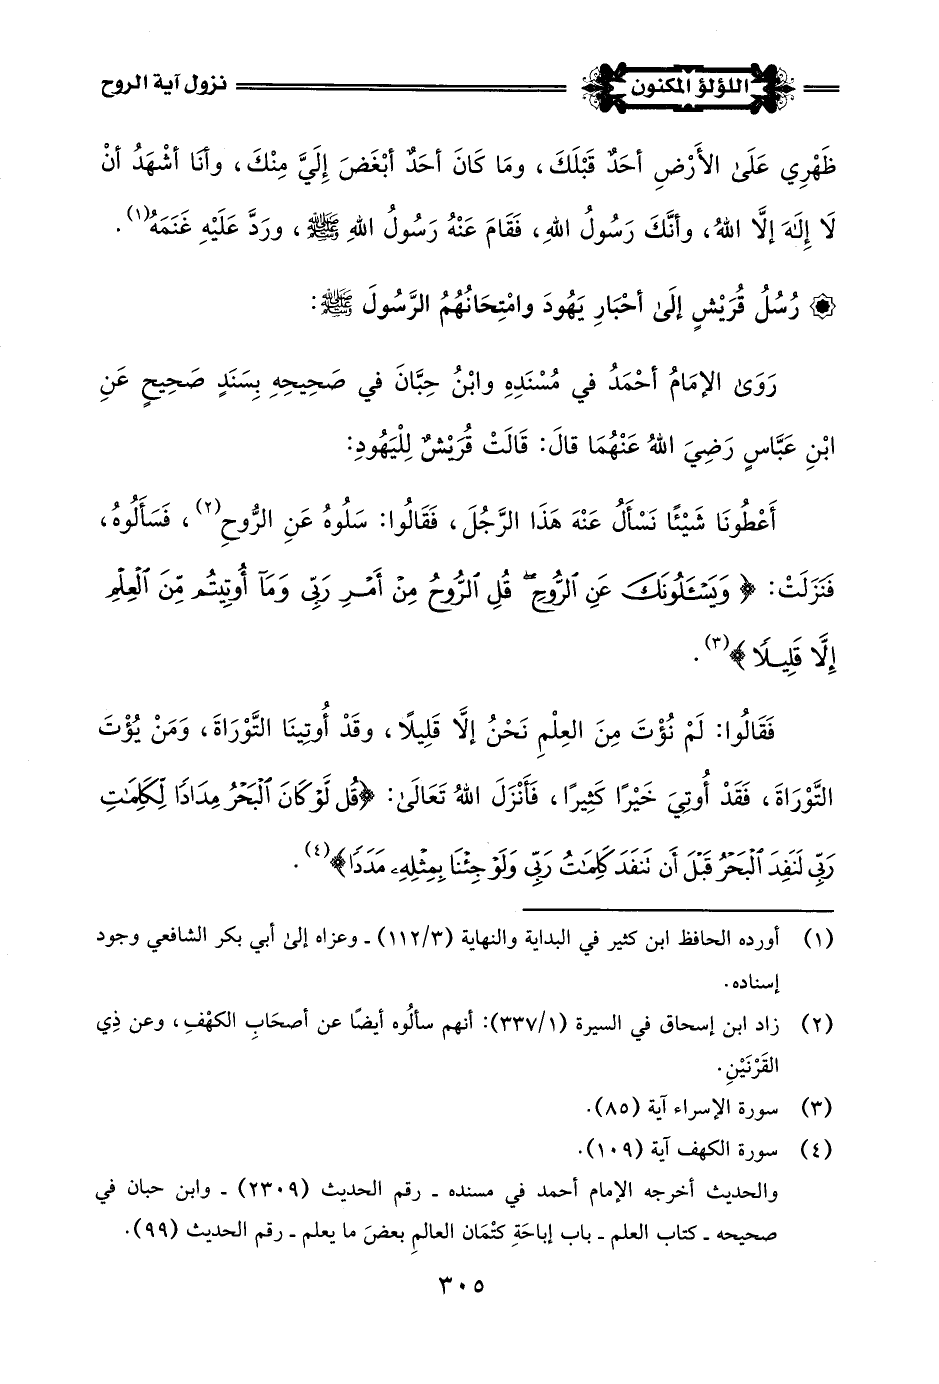 اللؤلؤ المكنون نزول آية الروح
ظَهْرِي عَلَىٰ الأَرْضِ أحَدٌ قَبْلَكَ، ومَا كَانَ أحَدٌ أبْغَضَ إِلَيَّ مِنْكَ، وأنَا أشْهَدُ أنْ
لَا إِلَهَ إلَّا اللهُ، وأنَّكَ رَسُولُ اللهِ، فَقَامَ عَنْهُ رَسُولُ اللهِ ﷺ، ورَدَّ عَلَيْهِ غَنَمَهُ(١).
۞ رُسُلُ قُرَيْشٍ إلَىٰ أحْبَارِ يَهُودَ وامْتِحَانُهُمُ الرَّسُولَ ﷺ:
رَوَىٰ الإمَامُ أحْمَدُ في مُسْنَدِهِ وابْنُ حِبَّانَ في صَحِيحِهِ بِسَنَدٍ صَحِيحٍ عَنِ
ابْنِ عَبَّاسٍ رَضِيَ اللهُ عَنْهُمَا قالَ: قَالَتْ قُرَيْشٌ لِلْيَهُودِ:
أَعْطُونَا شَيْئًا نَسْأَلُ عَنْهُ هَذَا الرَّجُلَ، فَقَالُوا: سَلُوهُ عَنِ الرُّوحِ(٢)، فَسَأَلُوهُ،
فَنَزَلَتْ: ﴿وَيَسْـَٔلُونَكَ عَنِ ٱلرُّوحِ ۖ قُلِ ٱلرُّوحُ مِنْ أَمْرِ رَبِّى وَمَآ أُوتِيتُم مِّنَ ٱلْعِلْمِ
إِلَّا قَلِيلًا﴾(٣).
فَقَالُوا: لَمْ نُؤْتَ مِنَ العِلْمِ نَحْنُ إلَّا قَلِيلًا، وقَدْ أُوتِينَا التَّوْرَاةَ، وَمَنْ يُؤْتَ
التَّوْرَاةَ، فَقَدْ أُوتِيَ خَيْرًا كَثِيرًا، فَأَنْزَلَ اللهُ تَعَالَىٰ: ﴿قُل لَّوْ كَانَ ٱلْبَحْرُ مِدَادًا لِّكَلِمَٰتِ
رَبِّى لَنَفِدَ ٱلْبَحْرُ قَبْلَ أَن تَنفَدَ كَلِمَٰتُ رَبِّى وَلَوْ جِئْنَا بِمِثْلِهِۦ مَدَدًا﴾(٤).
(١) أورده الحافظ ابن كثير في البداية والنهاية (١١٢/٣) ـ وعزاه إلىٰ أبي بكر الشافعي وجود
إسناده.
(٢) زاد ابن إسحاق في السيرة (٣٣٧/١): أنهم سألُوه أيضًا عن أصحَابِ الكهْفِ، وعن ذِي
القَرْنَيْنِ.
(٣) سورة الإسراء آية (٨٥).
(٤) سورة الكهف آية (١٠٩).
والحديث أخرجه الإمام أحمد في مسنده ـ رقم الحديث (٢٣٠٩) ـ وابن حبان في
صحيحه ـ كتاب العلم ـ باب إباحَةِ كتْمَان العالمِ بعضَ ما يعلم ـ رقم الحديث (٩٩).
٣٠٥